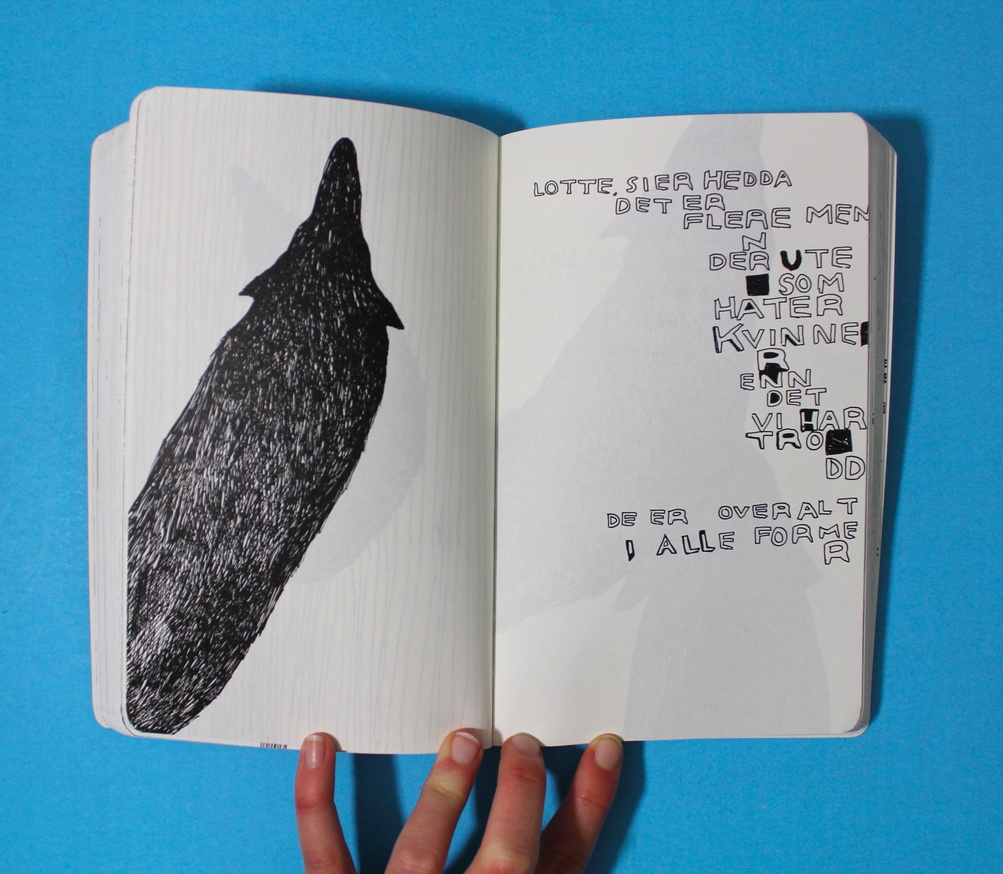 LOTTE, SIER HEDDA
DET ER
FLERE MEN
N
DER UTE
SOM
HATER
KVINNE
R
ENN
DET
VI HAR
TRO
DD
DE ER OVERALT
I ALLE FORME
R